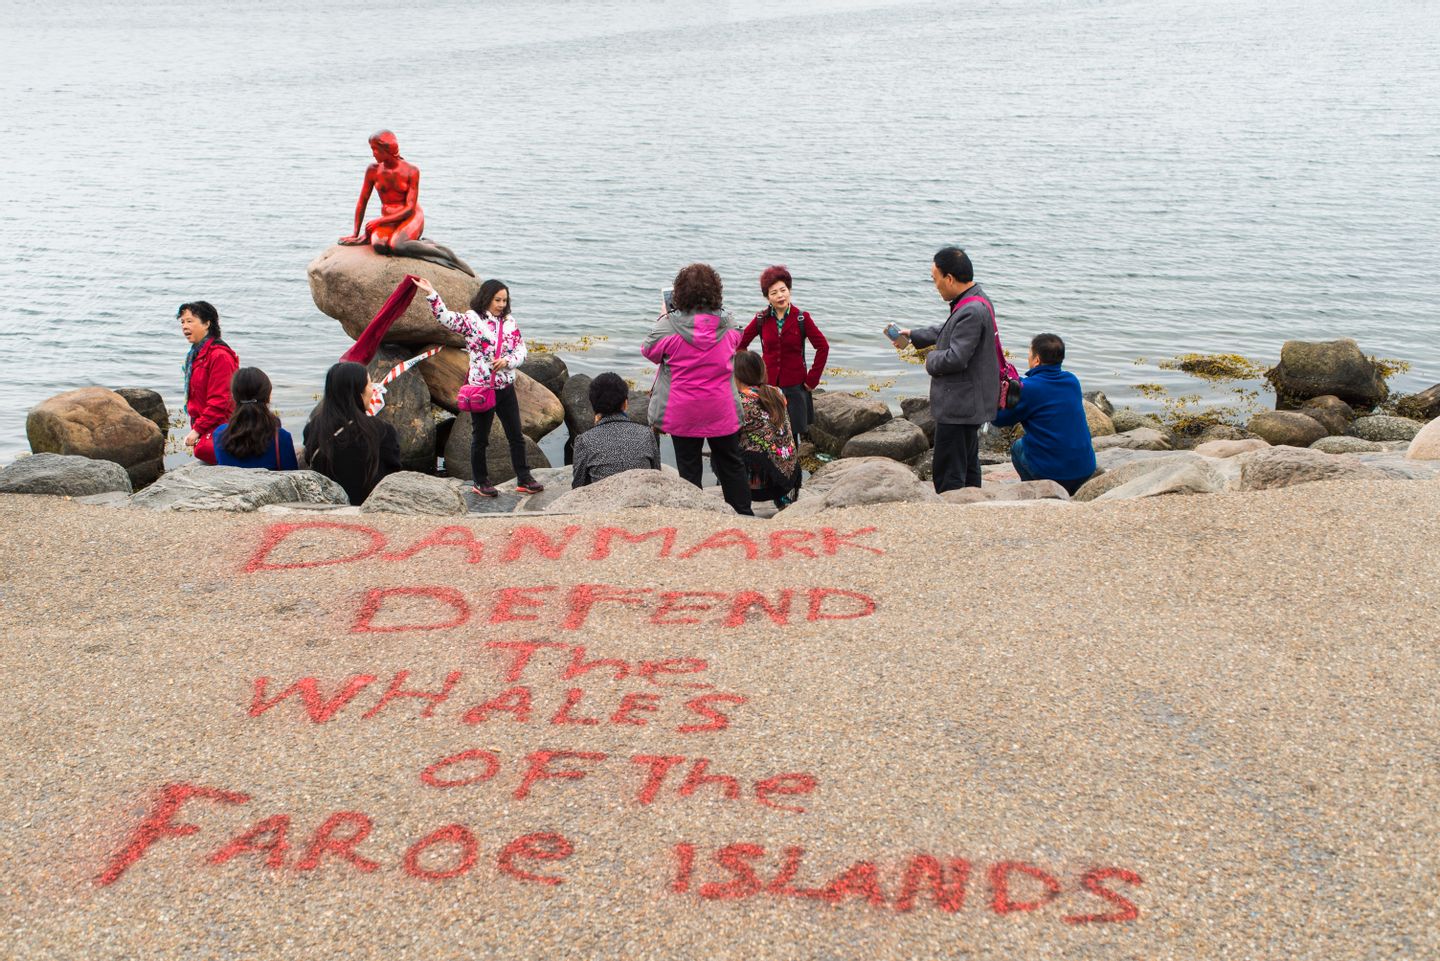 DANMARK
DEFEND
The
WHALES
OF The
FAROe ISLANDS